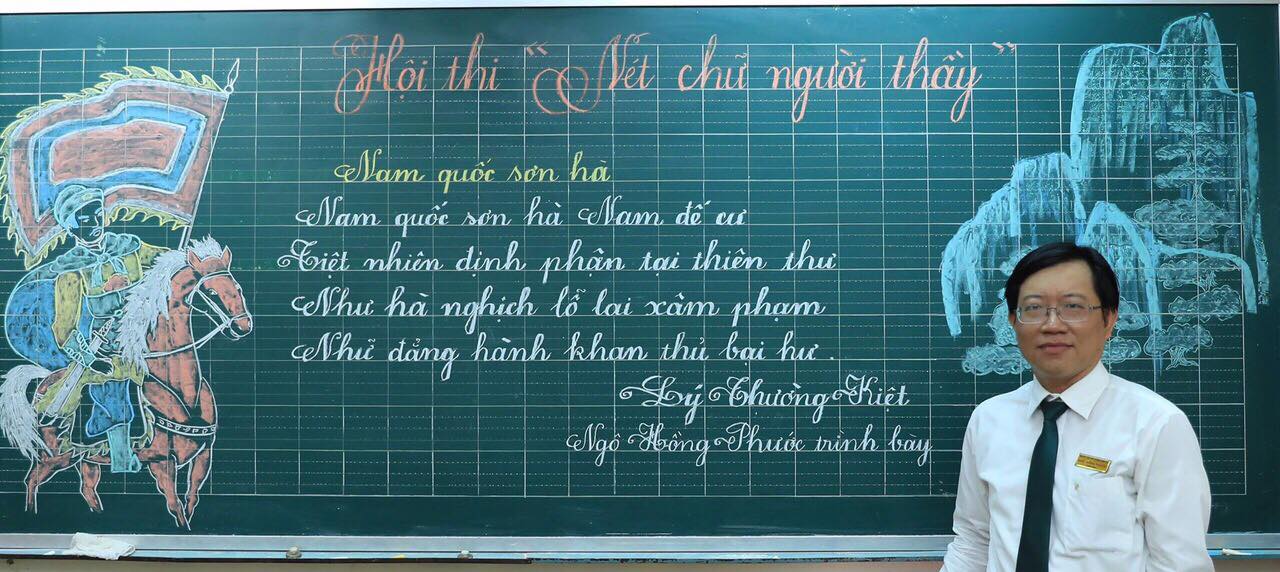 Hội thi “Nét chữ người thầy”
Nam quốc sơn hà
Nam quốc sơn hà Nam đế cư
Tiệt nhiên định phận tại thiên thư
Như hà nghịch lỗ lai xâm phạm
Nhữ đẳng hành khan thủ bại hư.
Lý Thường Kiệt
Ngô Hồng Phước trình bày